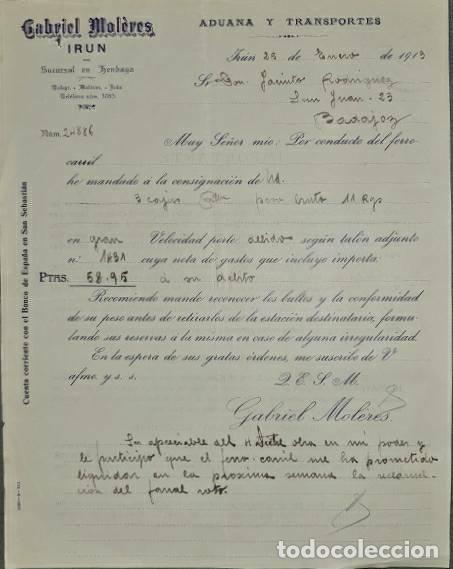 Gabriel Molères
IRUN
Sucursal en Hendaya
Telegr. - Molères, - Irún
Teléfono núm. 1085
ADUANA Y TRANSPORTES
Irún 25 de Enero de 1913
Sr. Don Jacinto Rodriguez
San Juan - 23
Badajoz
Núm. 24886
Muy Señor mio: Por conducto del ferro
carril
he mandado á la consignación de Ud.
3 cajas peso bruto 11 Kgs
en gran Velocidad porte debido según talón adjunto
nº 1431 cuya nota de gastos que incluyo importa:
PTAS. 58.95 á su debito
Recomiendo mande reconocer los bultos y la conformidad
de su peso antes de retirarlos de la estación destinataria, formu-
lando sus reservas á la misma en caso de alguna irregularidad.
En la espera de sus gratas órdenes, me suscribo de V
afmo. y s. s.
Q. E. S. M.
Gabriel Molères
Su apreciable del obra en mi poder y
le participo que el ferro-carril me ha prometido
liquidar en la proxima semana la reclama-
ción del farol roto.
Cuenta corriente con el Banco de España en San Sebastián
todocoleccion.net